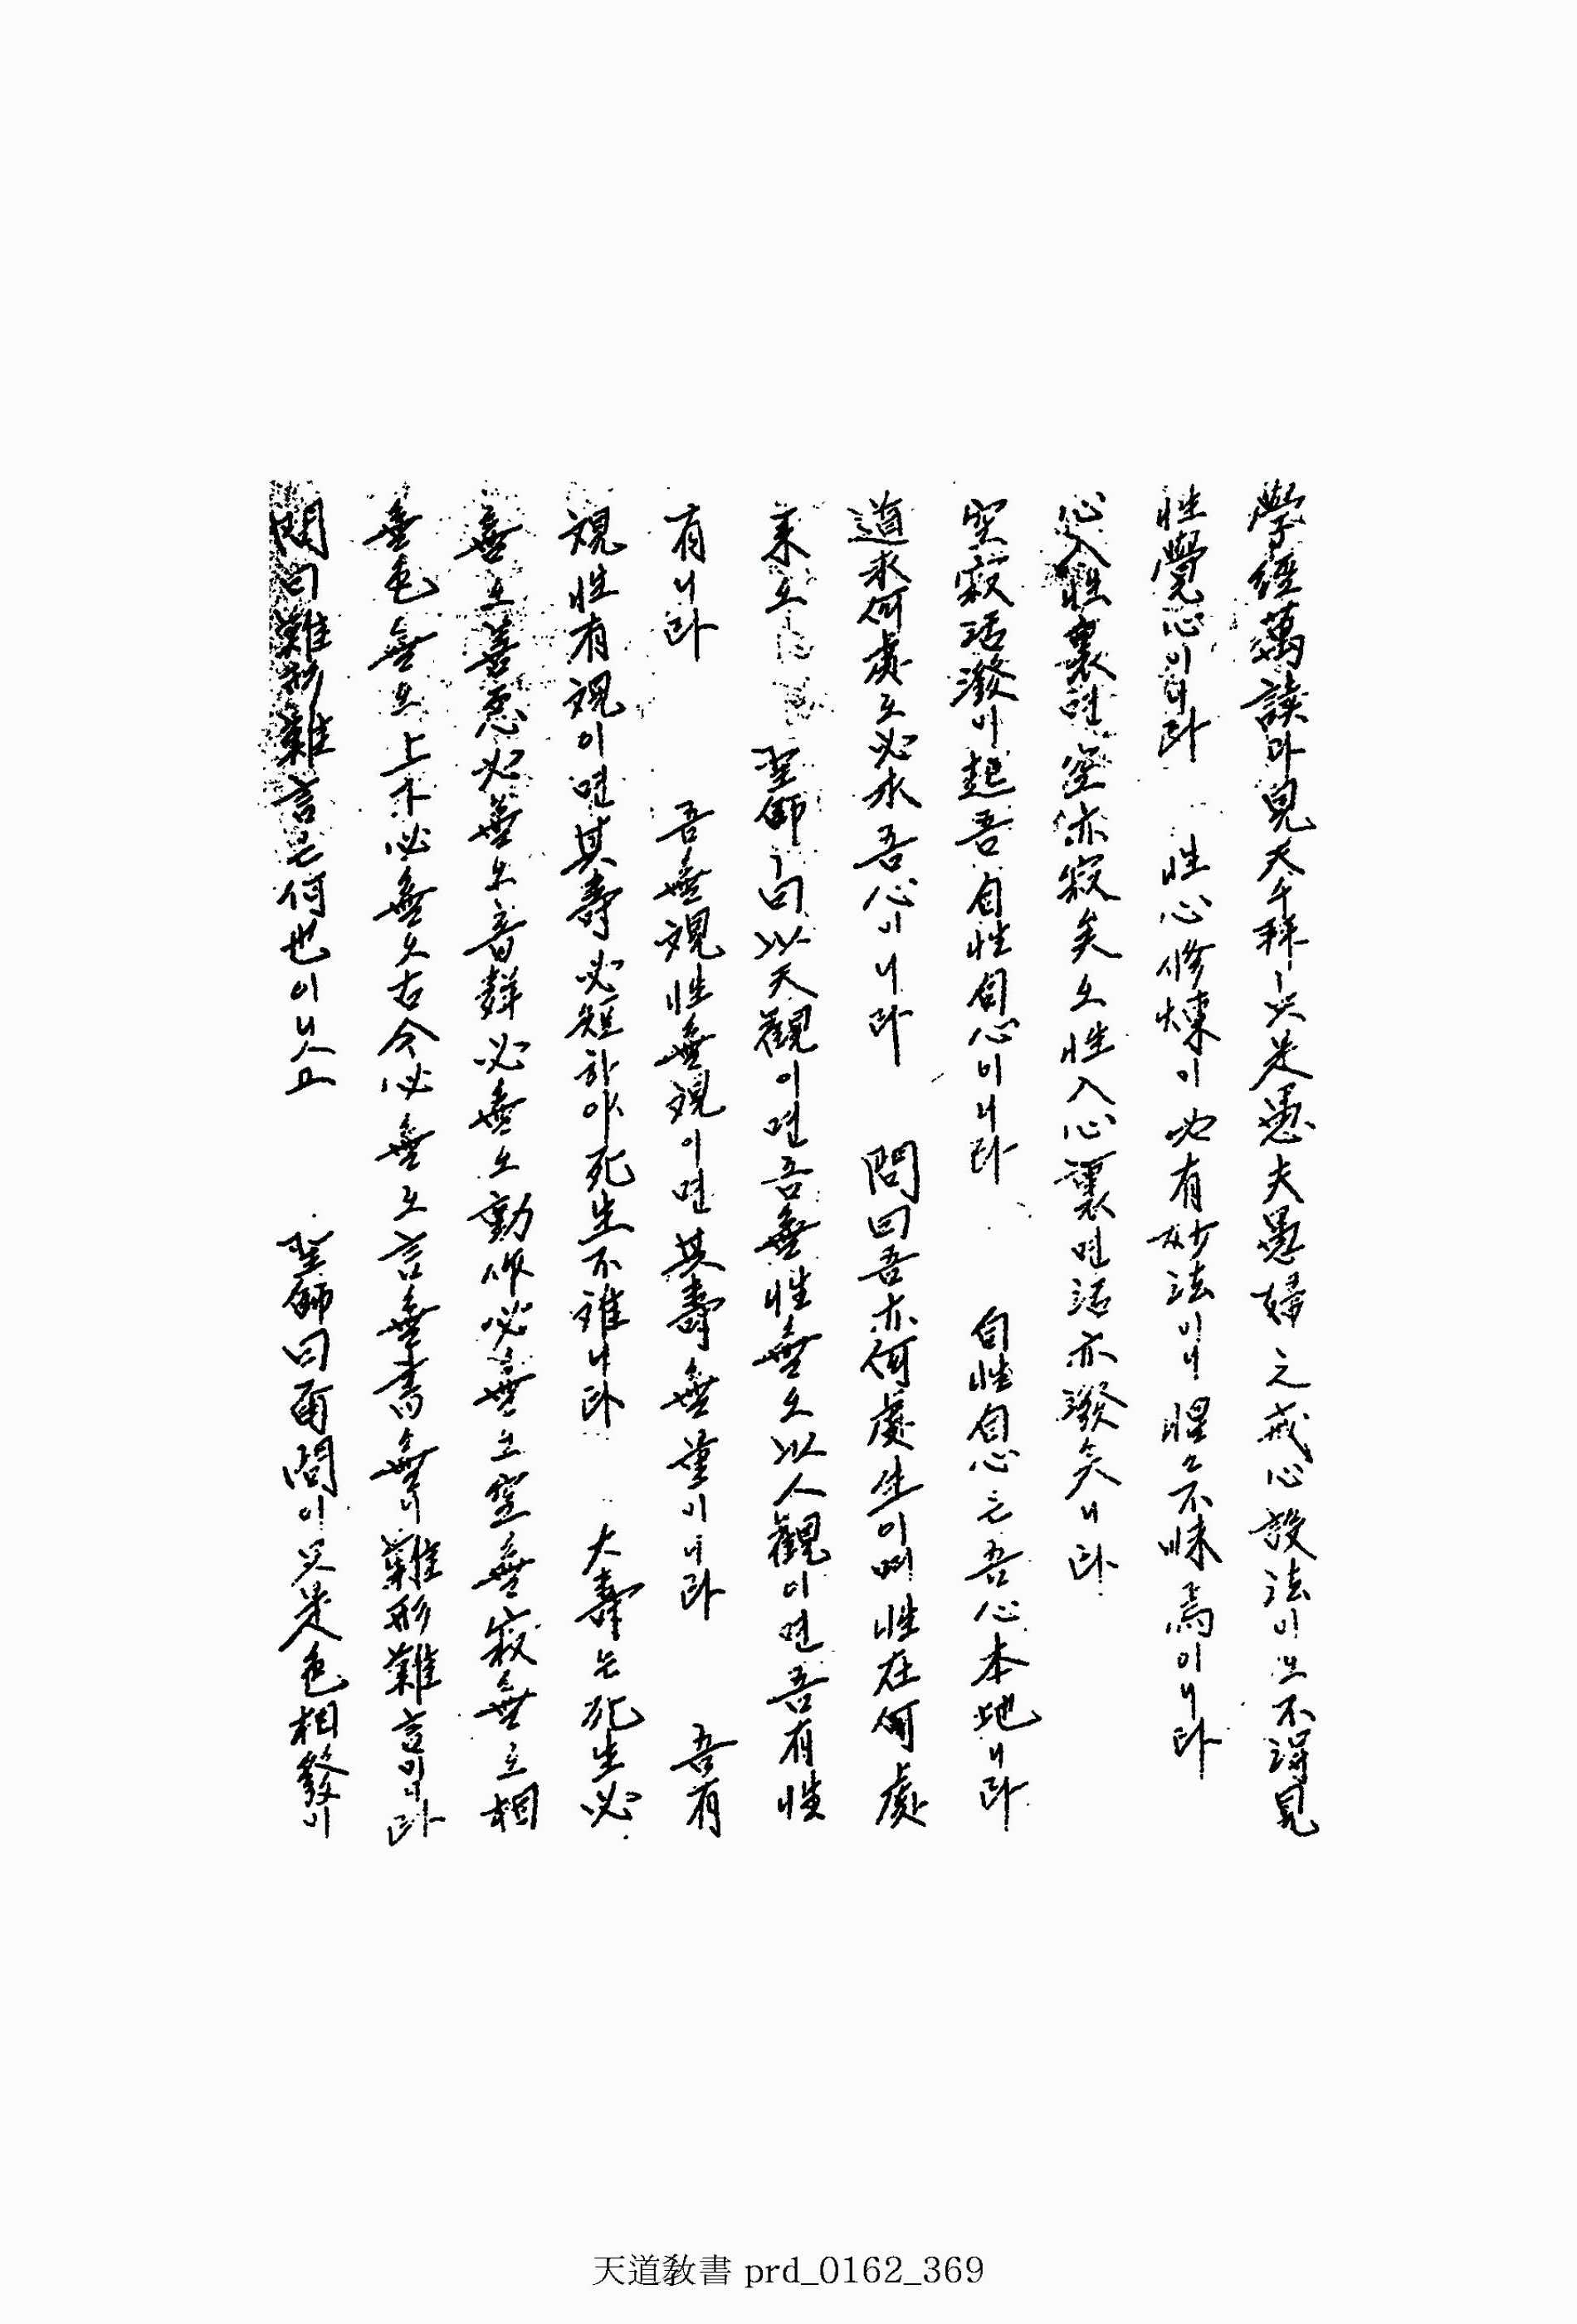 學經萬讀과見天千拜난只是愚夫愚婦之戒心說法이오不得見
性覺心이니라 性心修煉이必有妙法이니惺々不昧焉이니라
心入性裏면空亦寂矣오性入心裏면活亦潑矣니라
空寂活潑이起吾自性自心이니라 自性自心은吾心本地니라
道求何處오必求吾心이니라 問曰吾亦何處生이며性在何處
來오 聖師曰以天觀이면吾無性無오以人觀이면吾有性
有니라 吾無觀性無觀이면其壽無量이니라 吾有
觀性有觀이면其壽必短하야死生不離니라 大壽는死生必
無오善惡必無오音聲必無오動作必無오空無寂無오相
無色無오上下必無오古今必無오言無書無하니難形難言이니라
問曰難形難言은何也이닛고 聖師曰爾問이只是色相發이